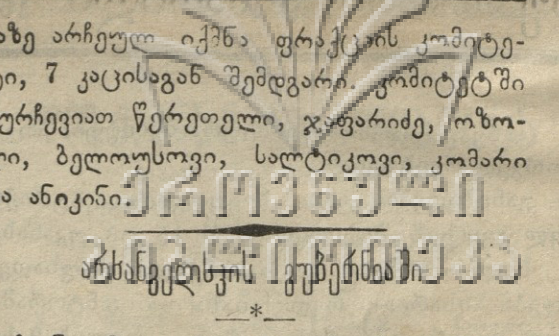 აზე არჩეულ იქმნა ფრაქციის კომიტე-
ი, 7 კაცისაგან შემდგარი. კომიტეტში
ურჩევიათ წერეთელი, ჯაფარიძე, ოზო-
ი, ბელოუსოვი, სალტიკოვი, კომარი
ა ანიკინი.
ეროვნული
ბიბლიოთეკა
არხანგელსკის გუბერნიაში